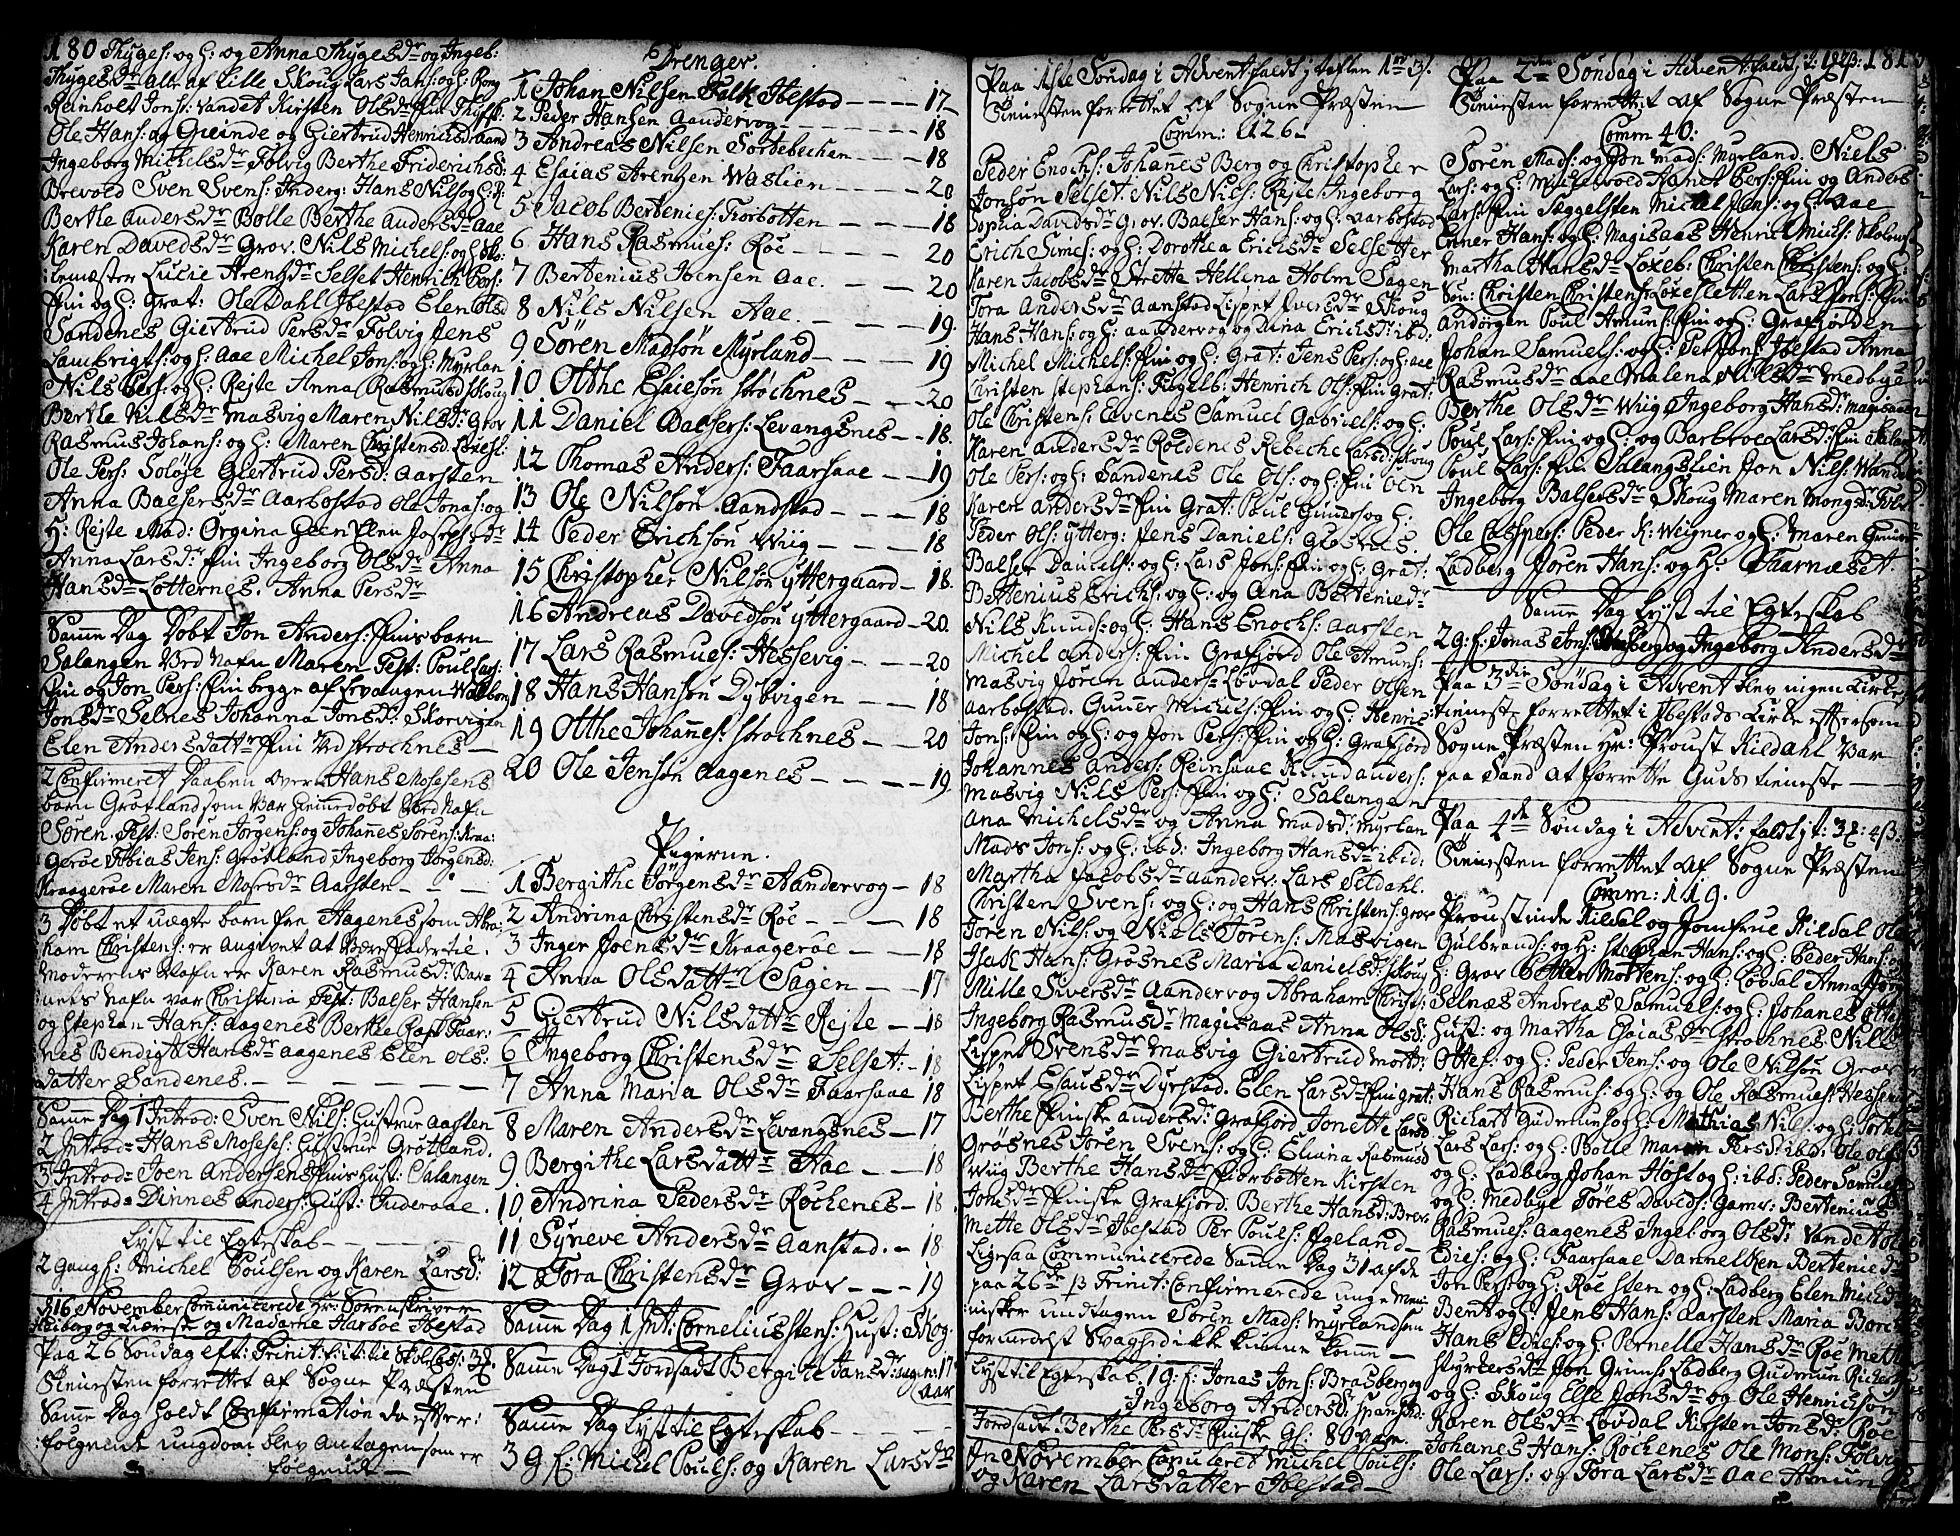 180 Thyges: og H: og Anna Thygesdr og Ingeb:
Thygesdr alle af Lille Skoug Lars Jans: og H: Rong
Reinholt Jons: Vandet Kirsten Olsdr
Ole Hans: og Qvinde og Giertrud Henrichsdr
Ingeborg Michelsdr Folvig Berthe Friderichsd:
Brevold Sven Svens: Inderg: Hans Nils: og H:
Berthe Andersdr Bolle Berthe Andersdr Aae
Karen Davedsdr Grov: Nils Michels: og H: Sko:
:lemæster Lucie Arensdr Selset Henrich Pers:
Fin og H: Grat: Ole Dahl Ibestad Elen Olsd
Sandenes Giertrud Persdr Folvig Jens
Lambrigts: og H: Aae Michel Jons: og H: Myrlan
Nils Pers: og H: Rejte Anna Rasmusd Skoug
Berthe Nilsdr Masvig Maren Nilsdr: Grov
Rasmus Johans: og H: Maren Christensd:
Ole Pers: Soløje Giertrud Persd: Aarsten
Anna Baltsersdr Aarbostad Ole Jonas: og
H: Rejte Mad: Orgina Geen Elen Josephsdr
Anna Larsdr Fin Ingeborg Olsdr Anna
Hansdr Lotternes. Anna Persdr
Samme Dag Døbt Jon Anders: Fins barn
Salangen Ved Nafn Maren Test: Poul Lars:
Fin og Jon Pers: Fin begge af Levangen Walborg
Jonsdr Selnes Johanna Jonsd: Skorvigen
Elen Andersdattr Fin Ved Strochnes —
2 Confirmeret Daaben over Hans Mosesens
barn Grøtland som Var hiemmedøbt Ved Nafn
Søren. Test: Søren Jørgens: og Johanes Sørens: Kraa:
Gerøe Tobias Jens: Grøtland Ingeborg Jørgensd:
Kraagerøe Maren Mosesdr Aarsten — —
3 Døbt et uægte barn fra Aagenes som Abra:
ham Christens: er Angivet at Være Fader til.
Moderens Nafn er Karen Rasmusd: Bar:
nets Nafn var Christina Test: Baltser Hansen
og Stephan Hans: Aagenes Berthe Rasm. Faar:
nes Bendigta Hansdr Aagenes Elen Ols:
datter Sandenes. — — — — —
Samme Dag 1 Introd: Sven Nils: Hustrue Aarsten
2 Introd: Hans Moseses: Hustrue Grøtland.
3 Introd: Joen Andersens Fins Hust: Salangen
4 Introd: Dinnes Anders: Hust: Inderaae.
Lyst til Egteskab — — —
2 gang f: Michel Poulsen og Karen Larsdr
d 16 November Comunicerede Hr: Sorenskriver
Heiberg og Kiæreste og Madame Harboe Ibestad
Paa 26 Søndag eft: Trinit:
Tienesten forrettet af Sogne Præsten
Samme Dag holdt Confirmation da efter:
følgende ungdom blev antagen som er
følgende —
Drenger.
1 Johan Nilsen Falk Ibestad — — — 17
2 Peder Hansen Aandervog — — — 18
3 Andreas Nilsen Sørtebechen — — 18
4 Esaias Arentzen Waslien — — — 20
5 Jacob Bertenies: Fiorbotten — — 18
6 Hans Rasmues: Roe — — — 20
7 Bertenius Ibensen Aae. — — 20
8 Nils Nilsen Aae. — — — 19.
9 Søren Madsøn Myrland — — 19
10 Otthe Esiesøn Strochnes — — 20
11 Daniel Baltsers: Levangsnes — — 18.
12 Thomas Anders: Faarsaae — — 19
13 Ole Nilsøn Aandstad — — — 18
14 Peder Erichsøn Wiig — — — 18
15 Christopher Nilsøn yttergaard — 18.
16 Andreas Davedsøn yttergaard — 20.
17 Lars Rasmues: Hessevig — — — 20
18 Hans Hansøn Dybvigen — — 18
19 Otthe Johannes: Strochnes — — 20
20 Ole Jensøn Aagenes — — — 19
Pigerne.
1 Bergithe Jørgensdr Aandervog — 18
2 Andrina Christensdr Roe — — — 18
3 Inger Joensdr Kraagerøe — — 18
4 Anna Olsdattr Sagen — — 17
5 Giertrud Nilsdattr Rejte — — 18
6 Ingeborg Christensdr Selset: — 18
7 Anna Maria Olsdr Faarsaae 18
8 Maren Andersdr Levangsnes — 17
9 Bergithe Larsdattr Aae — — 18
10 Andrina Pedersdr Røchenes — 18
11 Synneve Andersdr Aanstad. — 18
12 Tora Christensdr Grov — — 19
Samme Dag 1 Int: Cornelius Stens: Hust: Skog.
Samme Dag 1 Jordsadt Bergite Jansdr: 17
aar
Samme Dag Lyst til Egteskab — — —
3 G f: Michel Pouls: og Karen Larsdr
Paa 1ste Søndag i Advent faldt i taflen 1
Tienesten forrettet af Sogne Præsten
Comm: 126 —
Peder Enochs: Johanes Berg og Christopher
Jonsøn Selset: Nils Nils: Rejte Ingeborg
Sophia Davidsdr Grov. Baltser Hans: og H: Aarbostad
Erich Simes: og H: Dorothea Erichsdr Selsetter
Karen Jacobsdr Strette Hellena Holm Sagen
Tora Andersdr Aanstad Lispet Iversdr Skoug
Hans Hans: og H: Aandervog og Ana Erichsd: ibd:
Michel Michels: Fin og H: Grat: Jens Pers: og H: Aae
Christen Stephans: Fugelb: Henrich Ols: Fin Grat:
Ole Christens: Evenes Samuel Gabriels: og H:
Karen Andersdr Roldenes Rebeche Larsd: Skoug
Ole Pers: og H: Sandenes Ole Ols: og H: Fin Oen
Karen Andersdr Fin Grat: Poul Guners og H:
Peder Ols: ytterg: Jens Daniels: Grøsnes.
Baltser Daniels: og H: Lars Jons: Fin og H: Grat:
Bertenius Erichs: og H: og Ana Berteniedr
Nils Knuds: og H: Hans Enochs: Aarsten
Michel Anders: Fin Gratfjord Ole Amuns:
Masvig Søren Anders: Løvdal Peder Olsen
Aarbostad. Guner Michels: Fin og H: Henric
Jons: Fin og H: og Jon Pers: Fin og H: Gratfjord
Johannes Anders: Reinsaae Knud Anders:
Masvig Nils Pers: Fin og H: Salangen
Ana Michelsdr og Anna Madsd: Myrlan
Mads Jons: og H: ibd: Ingeborg Hansdr ibid:
Martha Jacobsdr Aanderv: Lars Seldahl.
Christen Svens: og H: og Hans Christens: Grov
Søren Nils: og Niels Sørens: Masvigen
Isak Hans: Grøsnes Maria Danielsd: Skoug
Mille Siversdr Aandervog Abraham Christ:
Ingeborg Rasmusdr Magisaas Anna Olsd:
Lispet Svensdr Masvig Giertrud Mortd:
Lispet Esausdr Dyrstad. Elen Larsdr Fin Grat:
Berthe Finske Andersd: Gratfjord Jonette Larsd
Grøsnes Søren Svens: og H: Eliana Rasmusd
Wiig Berthe Hansdr Fiorbotten Kirsten
Jonsdr Finske Gratfjord. Berthe Hansd: Brev:
Mette Olsdr Ibestad Per Pouls: Igeland —
Ligesaa Communicerede Samme Dag 31 af de
paa 26de p Trinit: Confirmerede unge Men:
:nisker undtagen Søren Mads: Myrland som
formedelst Svaghed ikke kunne komme —
Lyst til Egteskab. 1 G: f: Jonas Jons: Brasberg og
Ingeborg Andersd: Spansd:
Jordsadt: Berthe Persdr Finske Gl: 80 aar.
In November Copuleret Michel Pouls:
og Karen Larsdatter Ibestad —
Paa 2den Søndag i Advent faldt i: 181
Tienesten forrettet af Sogne Præsten
Comm 40:
Søren Mads: og Jon Mads: Myrland: Niels
Lars: og H: Michelsvold Hanet Pers: Fin og Anders
Lars: Fin Seggelsten Michel Jens: og H: Aae
Enner Hans: og H: Magisaas Henric Mich:
Martha Hansdr Loxeb: Christen Christens: og H:
Søn: Christen Christens: Loxesletten Lars Jons: Fin
Andørgen Poul Amuns: Fin og H: Gratfjorden
Johan Samuels: og H: Per Jons: Ibestad Anna
Rasmusdr Aae Malena Nilsdr Medbye
Berthe Olsdr Wiig Ingeborg Hansdr: Magisaas
Poul Lars: Fin og H: og Barbroe Larsd: Fin
Poul Lars: Fin Salangslien Jon Nils: Wandet
Ingeborg Baltsersdr Skoug Maren Monsdr
Ole Caspers: Peder K: Weigner og H: Maren
Ladberg Søren Hans: og H: Faarnæset
Samme Dag Lyst til Egteskab
2 G: f: Jonas Jons: og Ingeborg Andersdr
Paa 3die Søndag i Advent blev ingen Kirke
tieneste forrettet i Ibestads Kirke eftersom
Sogne Præsten Hr: Proust Kildahl Var
paa Sand at forrette Guds tieneste —
Paa 4de Søndag i Advent: faldt i t: 3
Tienesten forrettet af Sogne Præsten
Comm: 119.
Proustinde Kildal og Jomfrue Kildal Ole
Gulbrands: og H: Stephan Hans: og H: Peder Hans: og
H: Grov Mortens: og H: Løvdal Anna
Selnæs Andreas Samuels: og H: Johanes
Hust: og Martha Esaiasdr Strochnes Nills
Ottes: og H: Peder Jens: og Ole Nilsøn Grov
Hans Rasmus: og H: og Ole Rasmues: Hessevi
Richart Gudmuns og H: Mathias Nils: og H:
Lars Lars: og H: Bolle Maren Persd: ibd: Ole Ols
og H: Ladberg Johan Host og H: ibd: Peder Samuels
og H: Medbye Tøres Daveds: Gamv: Bertenius
Rasmues: Aagenes Ingeborg Olsdr Vandet
Edies: og H: Faarsaae Berteniedr
Jon Pers: og H: Roe Sten og H: Ladberg Elen Michd
Bent og H: Jens Hans: Aarsten Maria
Hans Edies: og H: Pernelle Hansdr Roe Mette
Styrkersdr Jon Grims: Ladberg Gudmun Richart
og H: Skoug Else Jonsdr og Ole Henricsøn
Karen Olsdr Løvdal Kirsten Jonsd: Roe
Johanes Hans: Røchenes Ole Mons: Folvig
Ole Lars: og Tora Larsdr Aae Amun